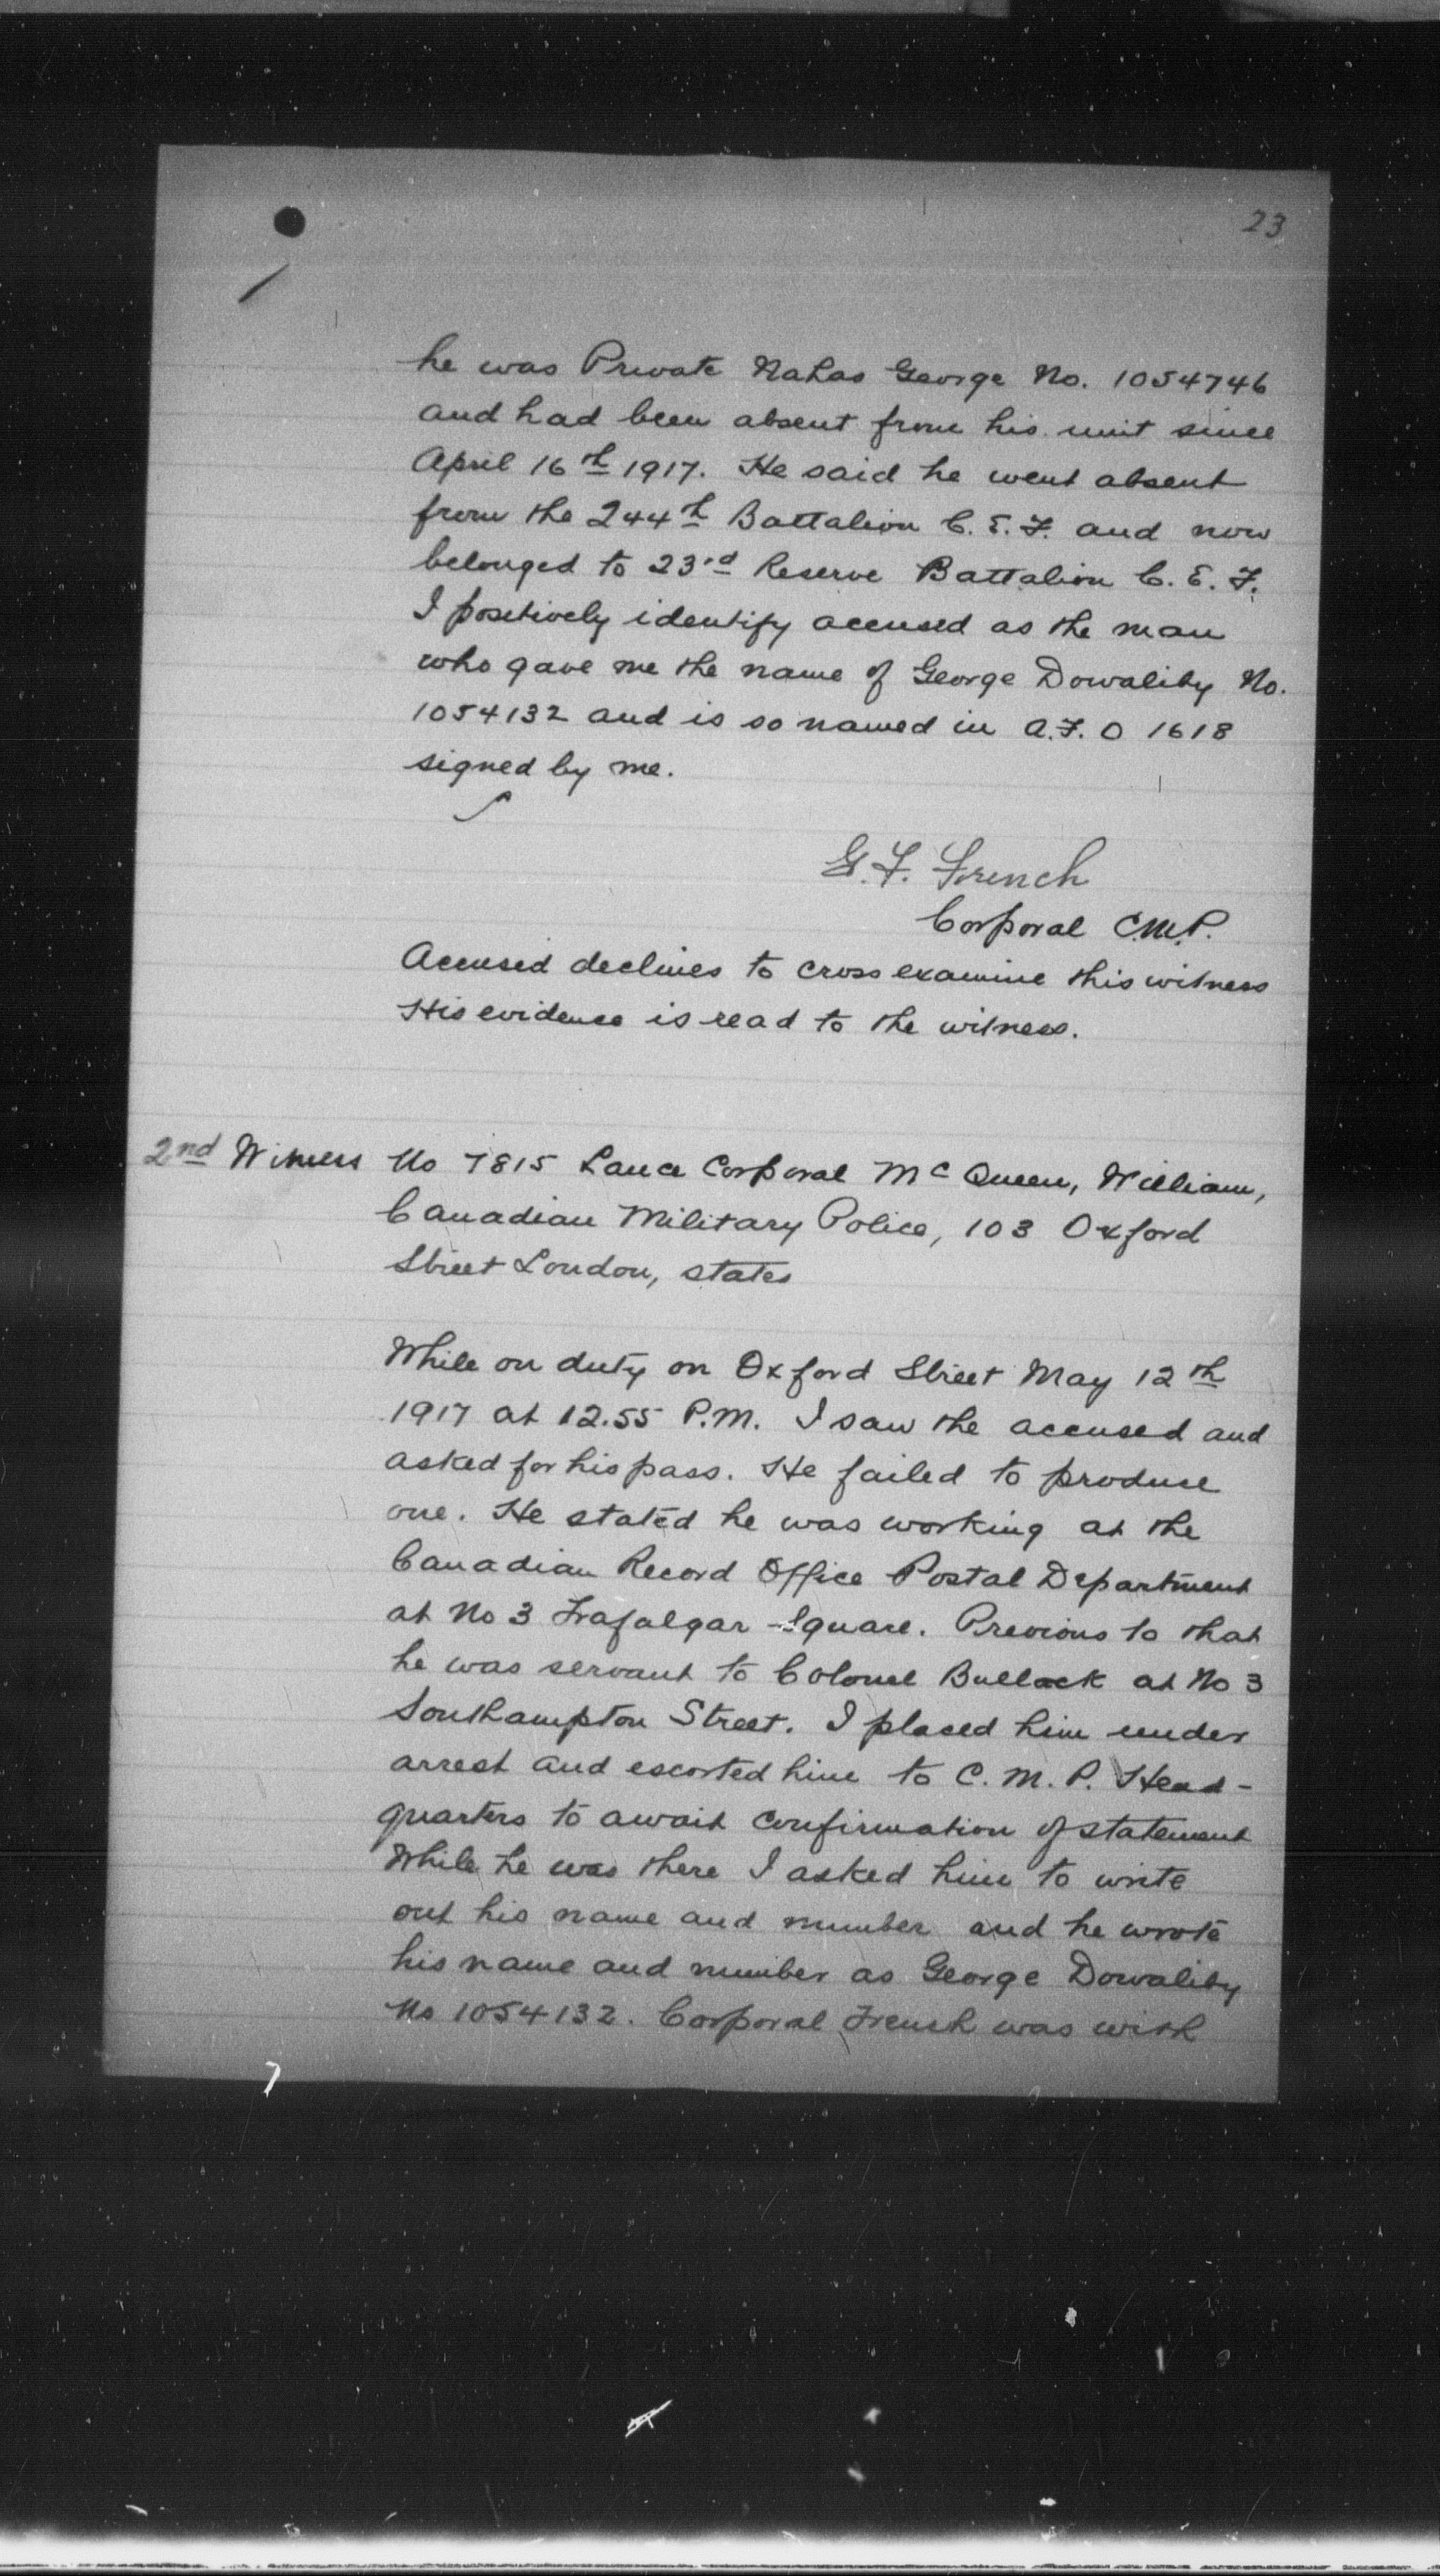 23
he was Private Nahas George No. 1054746
and had been absent from his unit since
April 16th 1917. He said he went absent
from the 244th Battalion C.E.F. and now
belonged to 23rd Reserve Battalion C.E.F.
I positively identify accused as the man
who gave me the name of George Dowaliby No.
1054132 and is so named in A.F.O 1618
signed by me.
G.F. French
Corporal C.M.P.
Accused declines to cross examine this witness
His evidence is read to the witness.
2nd Witness No 7815 Lance Corporal McQueen, William,
Canadian Military Police, 103 Oxford
Street London, states
While on duty on Oxford Street May 12th
1917 at 12.55 P.M. I saw the accused and
asked for his pass. He failed to produce
one. He stated he was working at the
Canadian Record Office Postal Department
at No 3 Trafalgar Square. Previous to that
he was servant to Colonel Bullock at No 3
Southampton Street. I placed him under
arrest and escorted him to C.M.P. Head-
quarters to await confirmation of statement
While he was there I asked him to write
out his name and number and he wrote
his name and number as George Dowaliby
No 1054132. Corporal French was with